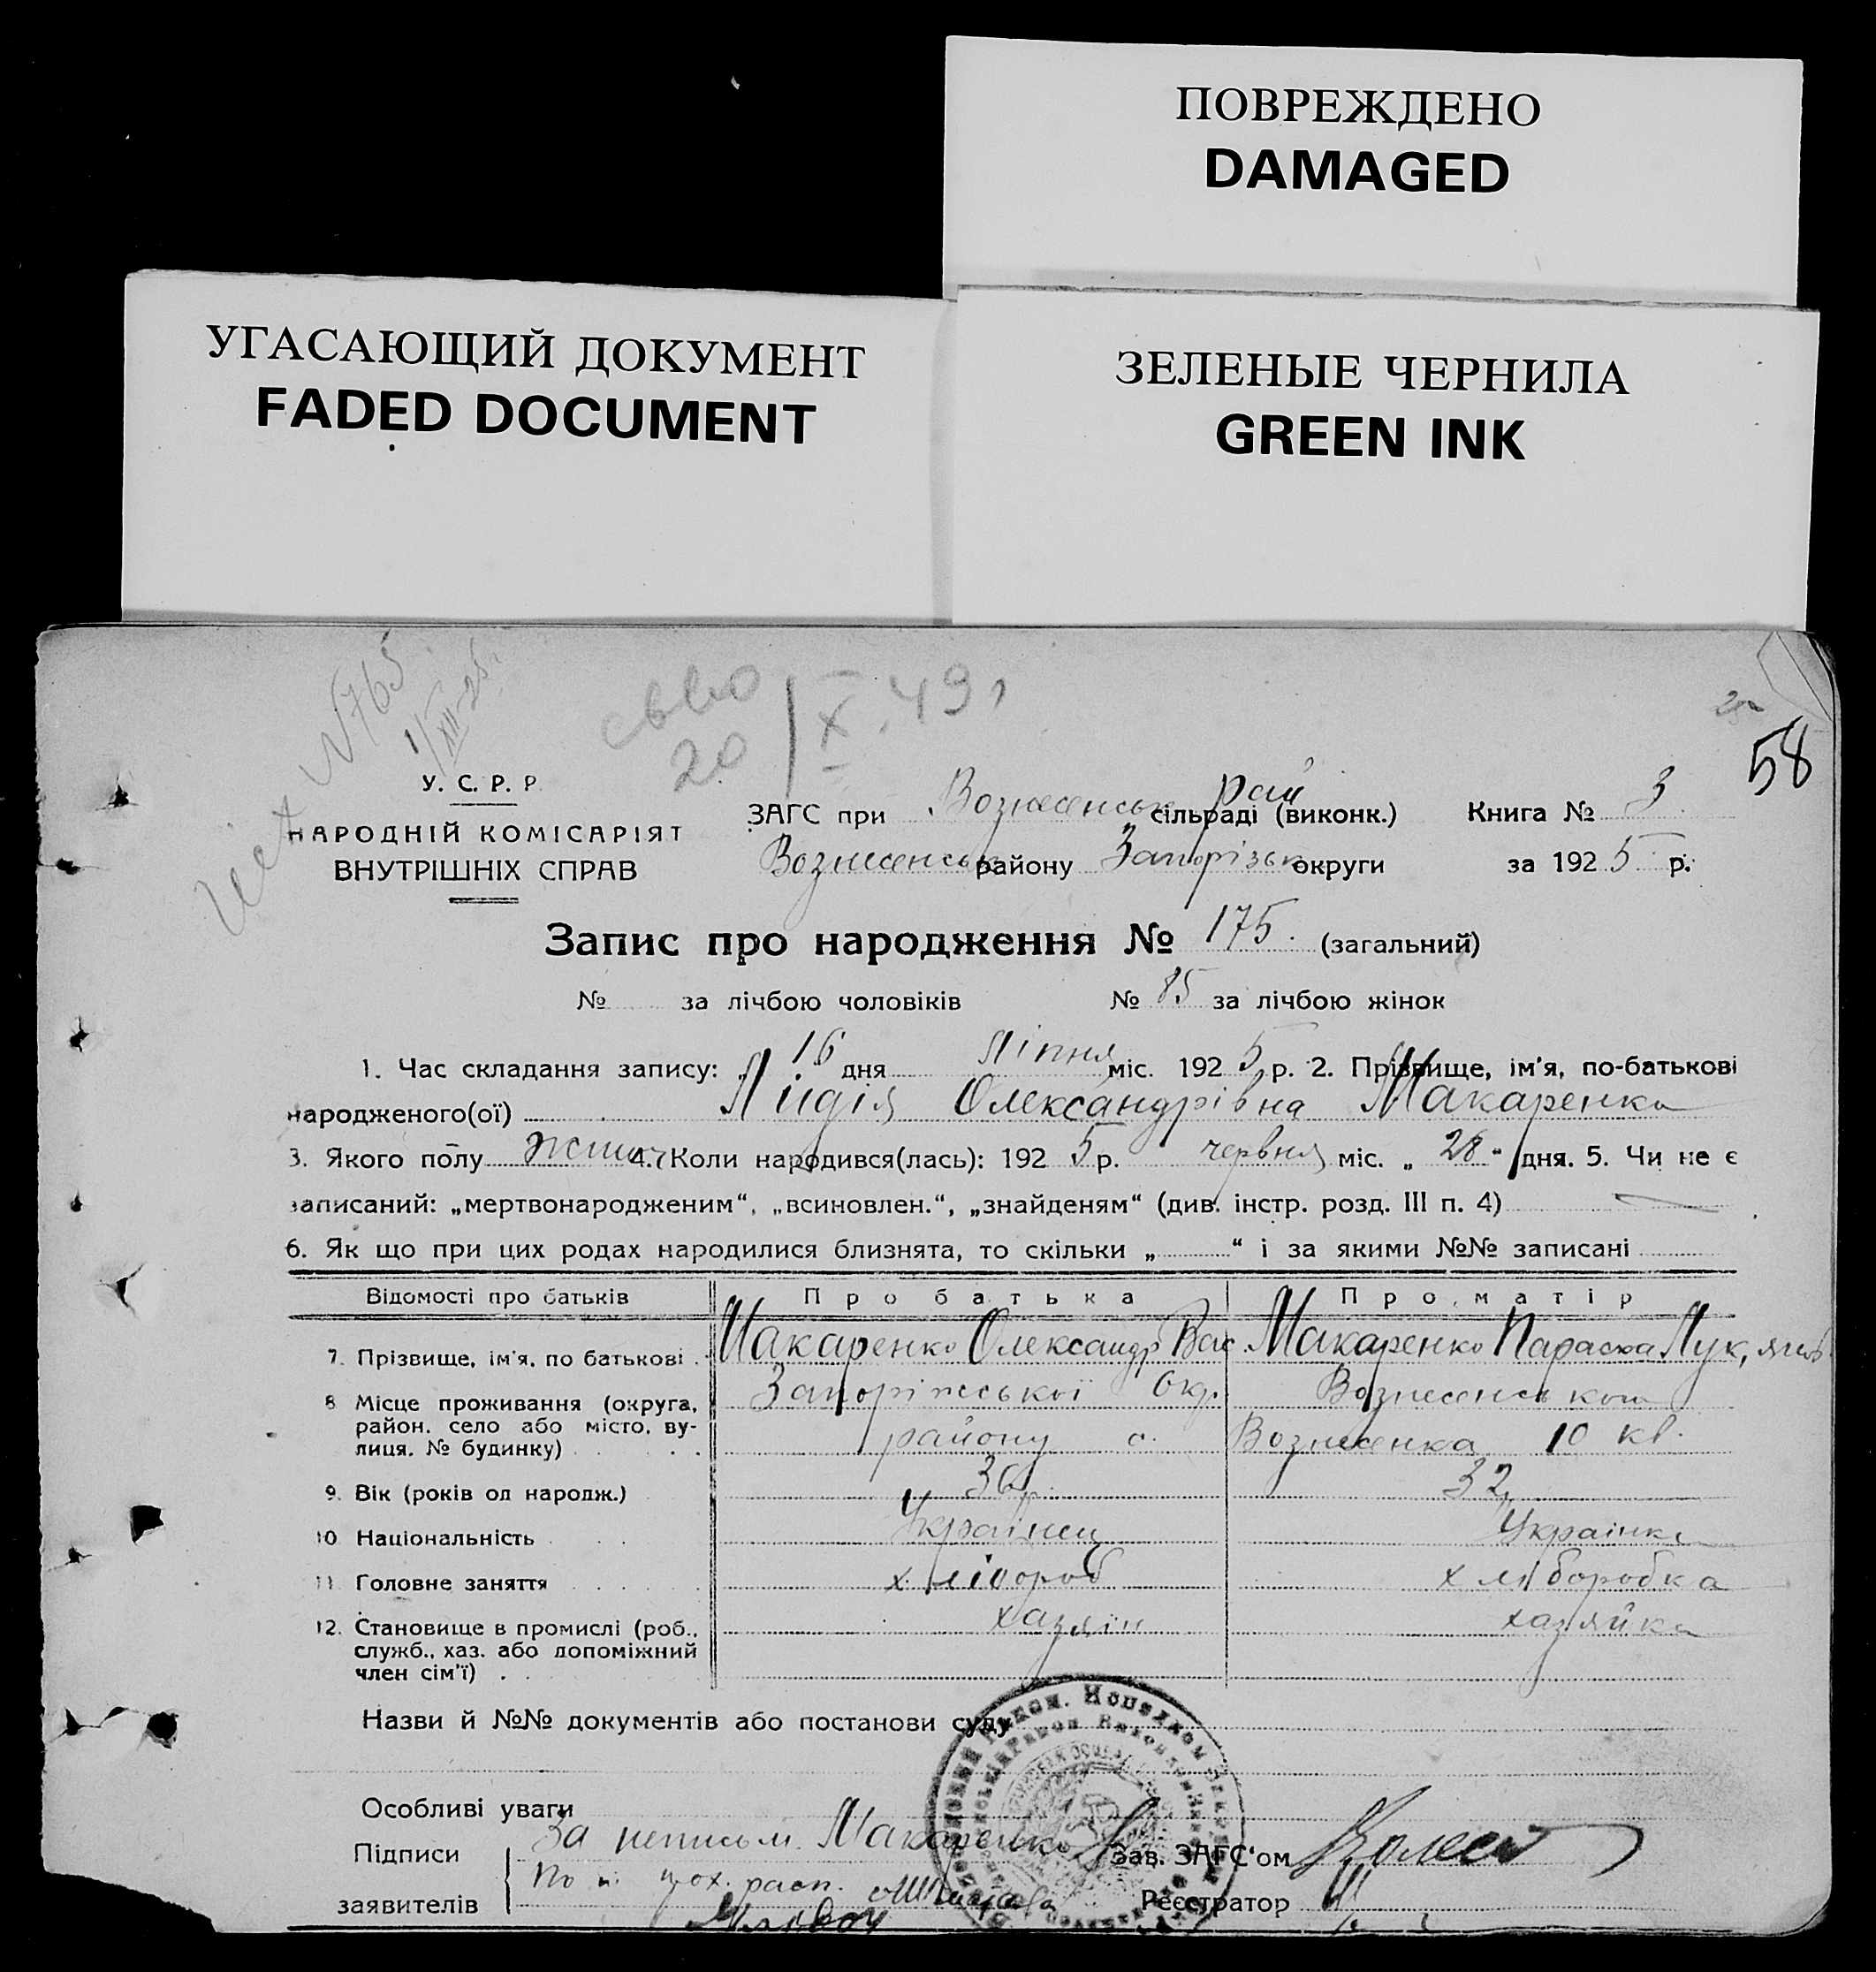 ПОВРЕЖДЕНО
DAMAGED
УГАСАЮЩИЙ ДОКУМЕНТ
FADED DOCUMENT
ЗЕЛЕНЫЕ ЧЕРНИЛА
GREEN INK
N765
1/XII-25
20/X.49
58
У. С. Р. Р.
НАРОДНІЙ КОМІСАРІЯТ
ВНУТРІШНІХ СПРАВ
ЗАГС при Вознесенськ рай сільраді (виконк.) Книга № 3
Вознесенськ району Запорізьк округи за 1925 р.
Запис про народження № 175. (загальний)
№ за лічбою чоловіків № 85 за лічбою жінок
1. Час складання запису: „ 16 дня Ліпня міс. 1925 р. 2. Прізвище, ім'я, по-батькові
народженого(ої) Лидія Олександрівна Макаренко
3. Якого полу 4. Коли народився(лась): 1925 р. червня міс. „ 28 “ дня. 5. Чи не є
записаний: „мертвонародженим“, „всиновлен.“, „знайденям“ (див. інстр. розд. III п. 4)
6. Як що при цих родах народилися близнята, то скільки „ “ і за якими №№ записані
Відомості про батьків Про батька Про матір
7. Прізвище, ім'я, по батькові Макаренко Олександр Вас. Макаренко Параска Лук,
8 Місце проживання (округа, Запоріжської Окр. Вознесенського
район, село або місто, ву-
лиця, № будинку) району с. Вознесенка 10 кв.
9. Вік (років од народж.) 36 32
10 Національність Українец Українка
11 Головне заняття хлібороб хліборобка
12. Становище в промислі (роб., хазяїн хазяйка
служб., хаз. або допоміжний
член сім'ї)
Назви й №№ документів або постанови суду
Особливі уваги
Підписи За неписьм. Макаренко Зав. ЗАГС'ом
заявителів Реєстратор